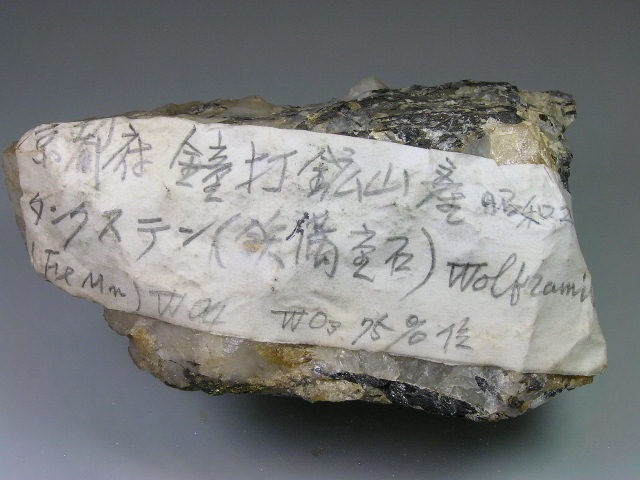 京都府 鐘打鉱山産 昭和2
タングステン(鉄満重石) Wolframi
(Fe Mn) WO4 WO3 75 % 位